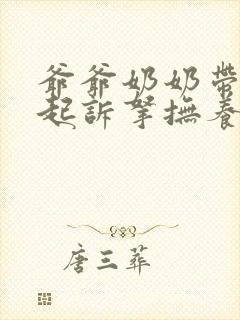 爺爺奶奶帶
起訴拏撫養
唐三葬